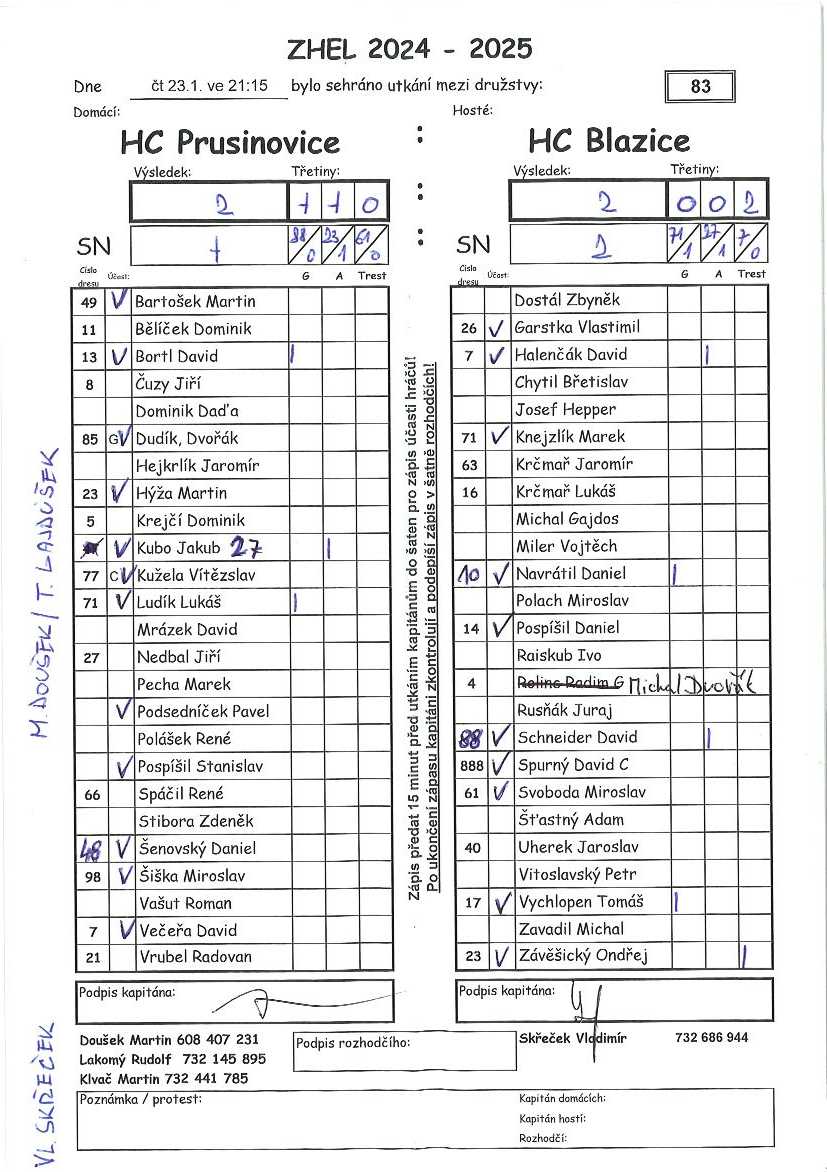 ZHEL 2024 - 2025
Dne čt 23.1. ve 21:15 bylo sehráno utkání mezi družstvy: 83
Domácí: Hosté:
HC Prusinovice : HC Blazice
Výsledek: Třetiny: Výsledek: Třetiny:
2 1 1 0 : 2 0 0 2
SN 1 88/0 23/1 61/0 : SN 2 71/1 27/1 7/0
Číslo dresu Účast: G A Trest Číslo dresu Účast: G A Trest
49 V Bartošek Martin
11 Bělíček Dominik
13 V Bortl David |
8 Čuzy Jiří
Dominik Daďa
85 G V Dudík, Dvořák
Hejkrlík Jaromír
23 V Hýža Martin
5 Krejčí Dominik
V Kubo Jakub 27 |
77 C V Kužela Vítězslav
71 V Ludík Lukáš |
Mrázek David
27 Nedbal Jiří
Pecha Marek
V Podsedníček Pavel
Polášek René
V Pospíšil Stanislav
66 Spáčil René
Stibora Zdeněk
48 V Šenovský Daniel
98 V Šiška Miroslav
Vašut Roman
7 V Večeřa David
21 Vrubel Radovan
Zápis předat 15 minut před utkáním kapitánům do šaten pro zápis účasti hráčů!
Po ukončení zápasu kapitáni zkontrolují a podepíší zápis v šatně rozhodčích!
Dostál Zbyněk
26 V Garstka Vlastimil
7 V Halenčák David |
Chytil Břetislav
Josef Hepper
71 V Knejzlík Marek
63 Krčmař Jaromír
16 Krčmař Lukáš
Michal Gajdos
Miler Vojtěch
10 V Navrátil Daniel |
Polach Miroslav
14 V Pospíšil Daniel
Raiskub Ivo
4 Relinc Radim G Michal Dvořák
Rusňák Juraj
88 V Schneider David |
888 V Spurný David C
61 V Svoboda Miroslav
Šťastný Adam
40 Uherek Jaroslav
Vitoslavský Petr
17 V Vychlopen Tomáš |
Zavadil Michal
23 V Závěšický Ondřej |
M. DOUŠEK / T. LAJDŮŠEK
VL SKŘEČEK
Podpis kapitána: Podpis kapitána:
Doušek Martin 608 407 231 Podpis rozhodčího: Skřeček Vladimír 732 686 944
Lakomý Rudolf 732 145 895
Klvač Martin 732 441 785
Poznámka / protest: Kapitán domácích:
Kapitán hostí:
Rozhodčí: